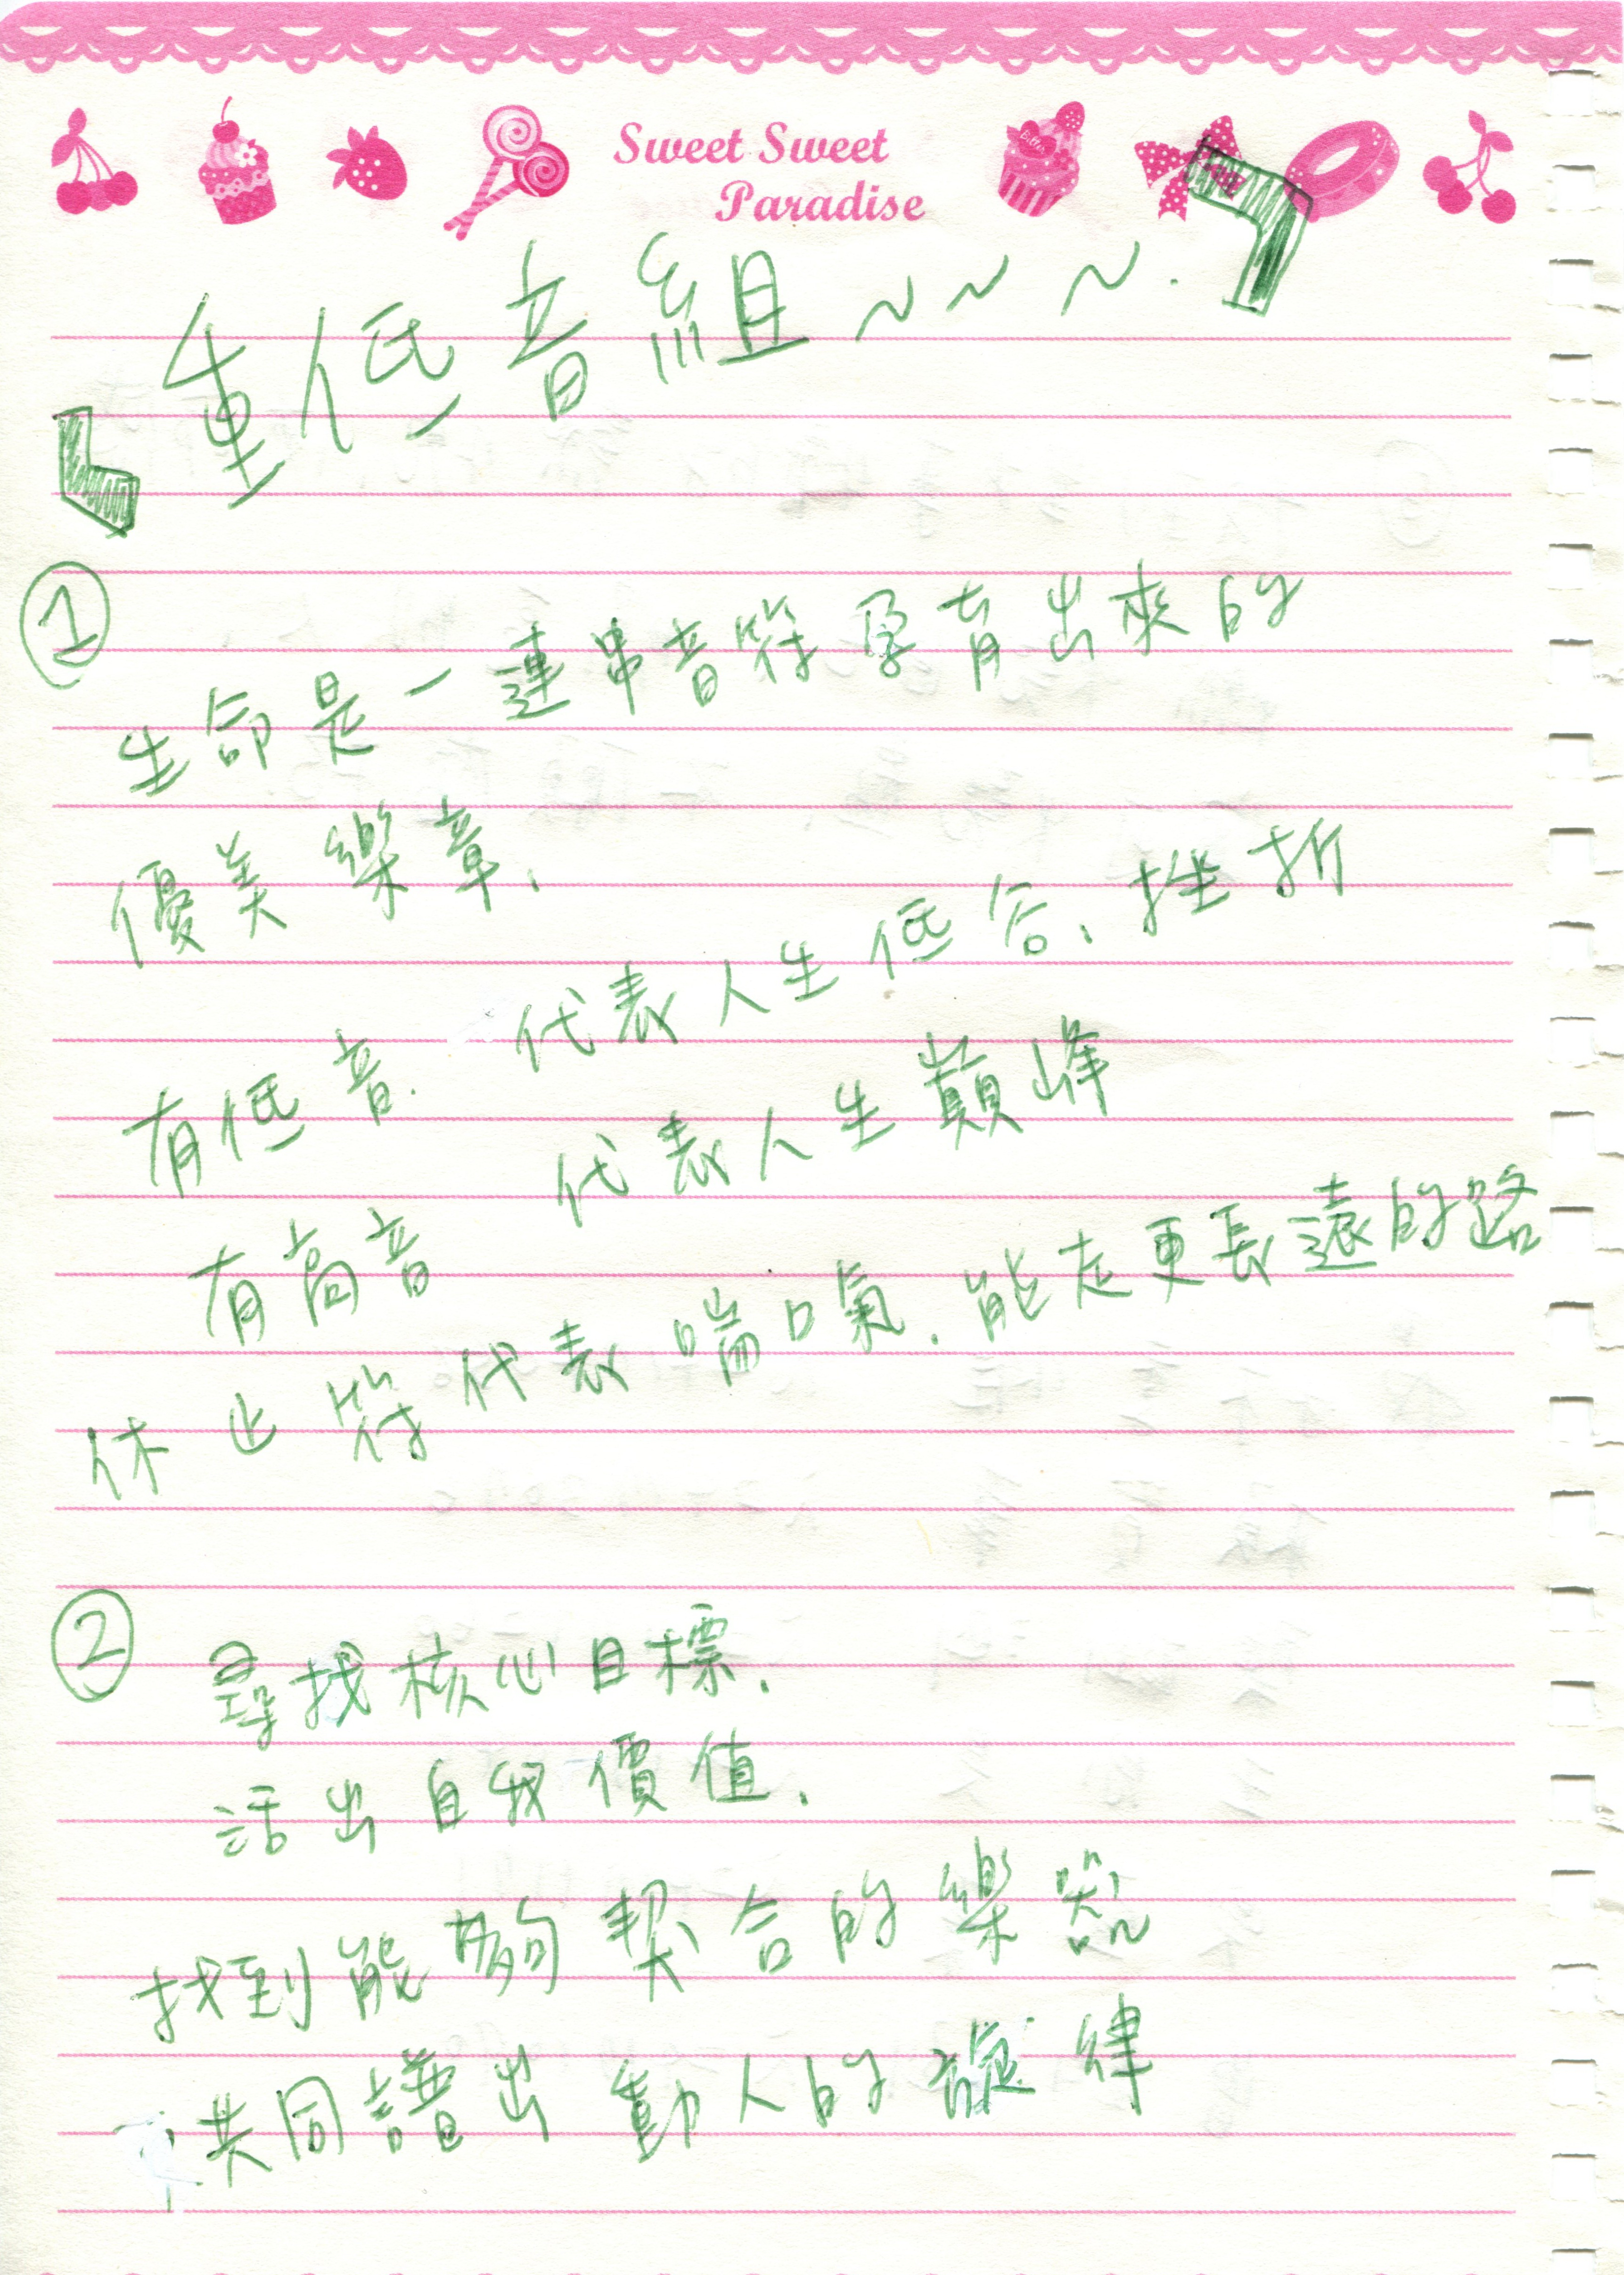 Sweet Sweet
Paradise
「重低音組~~~.」
①
生命是一連串音符孕育出來的
優美樂章、
有低音. 代表人生低谷、挫折
有高音 代表人生巔峰
休止符代表喘口氣.能走更長遠的路
②
尋找核心目標.
活出自我價值.
找到能夠契合的樂器
共同譜出動人的旋律